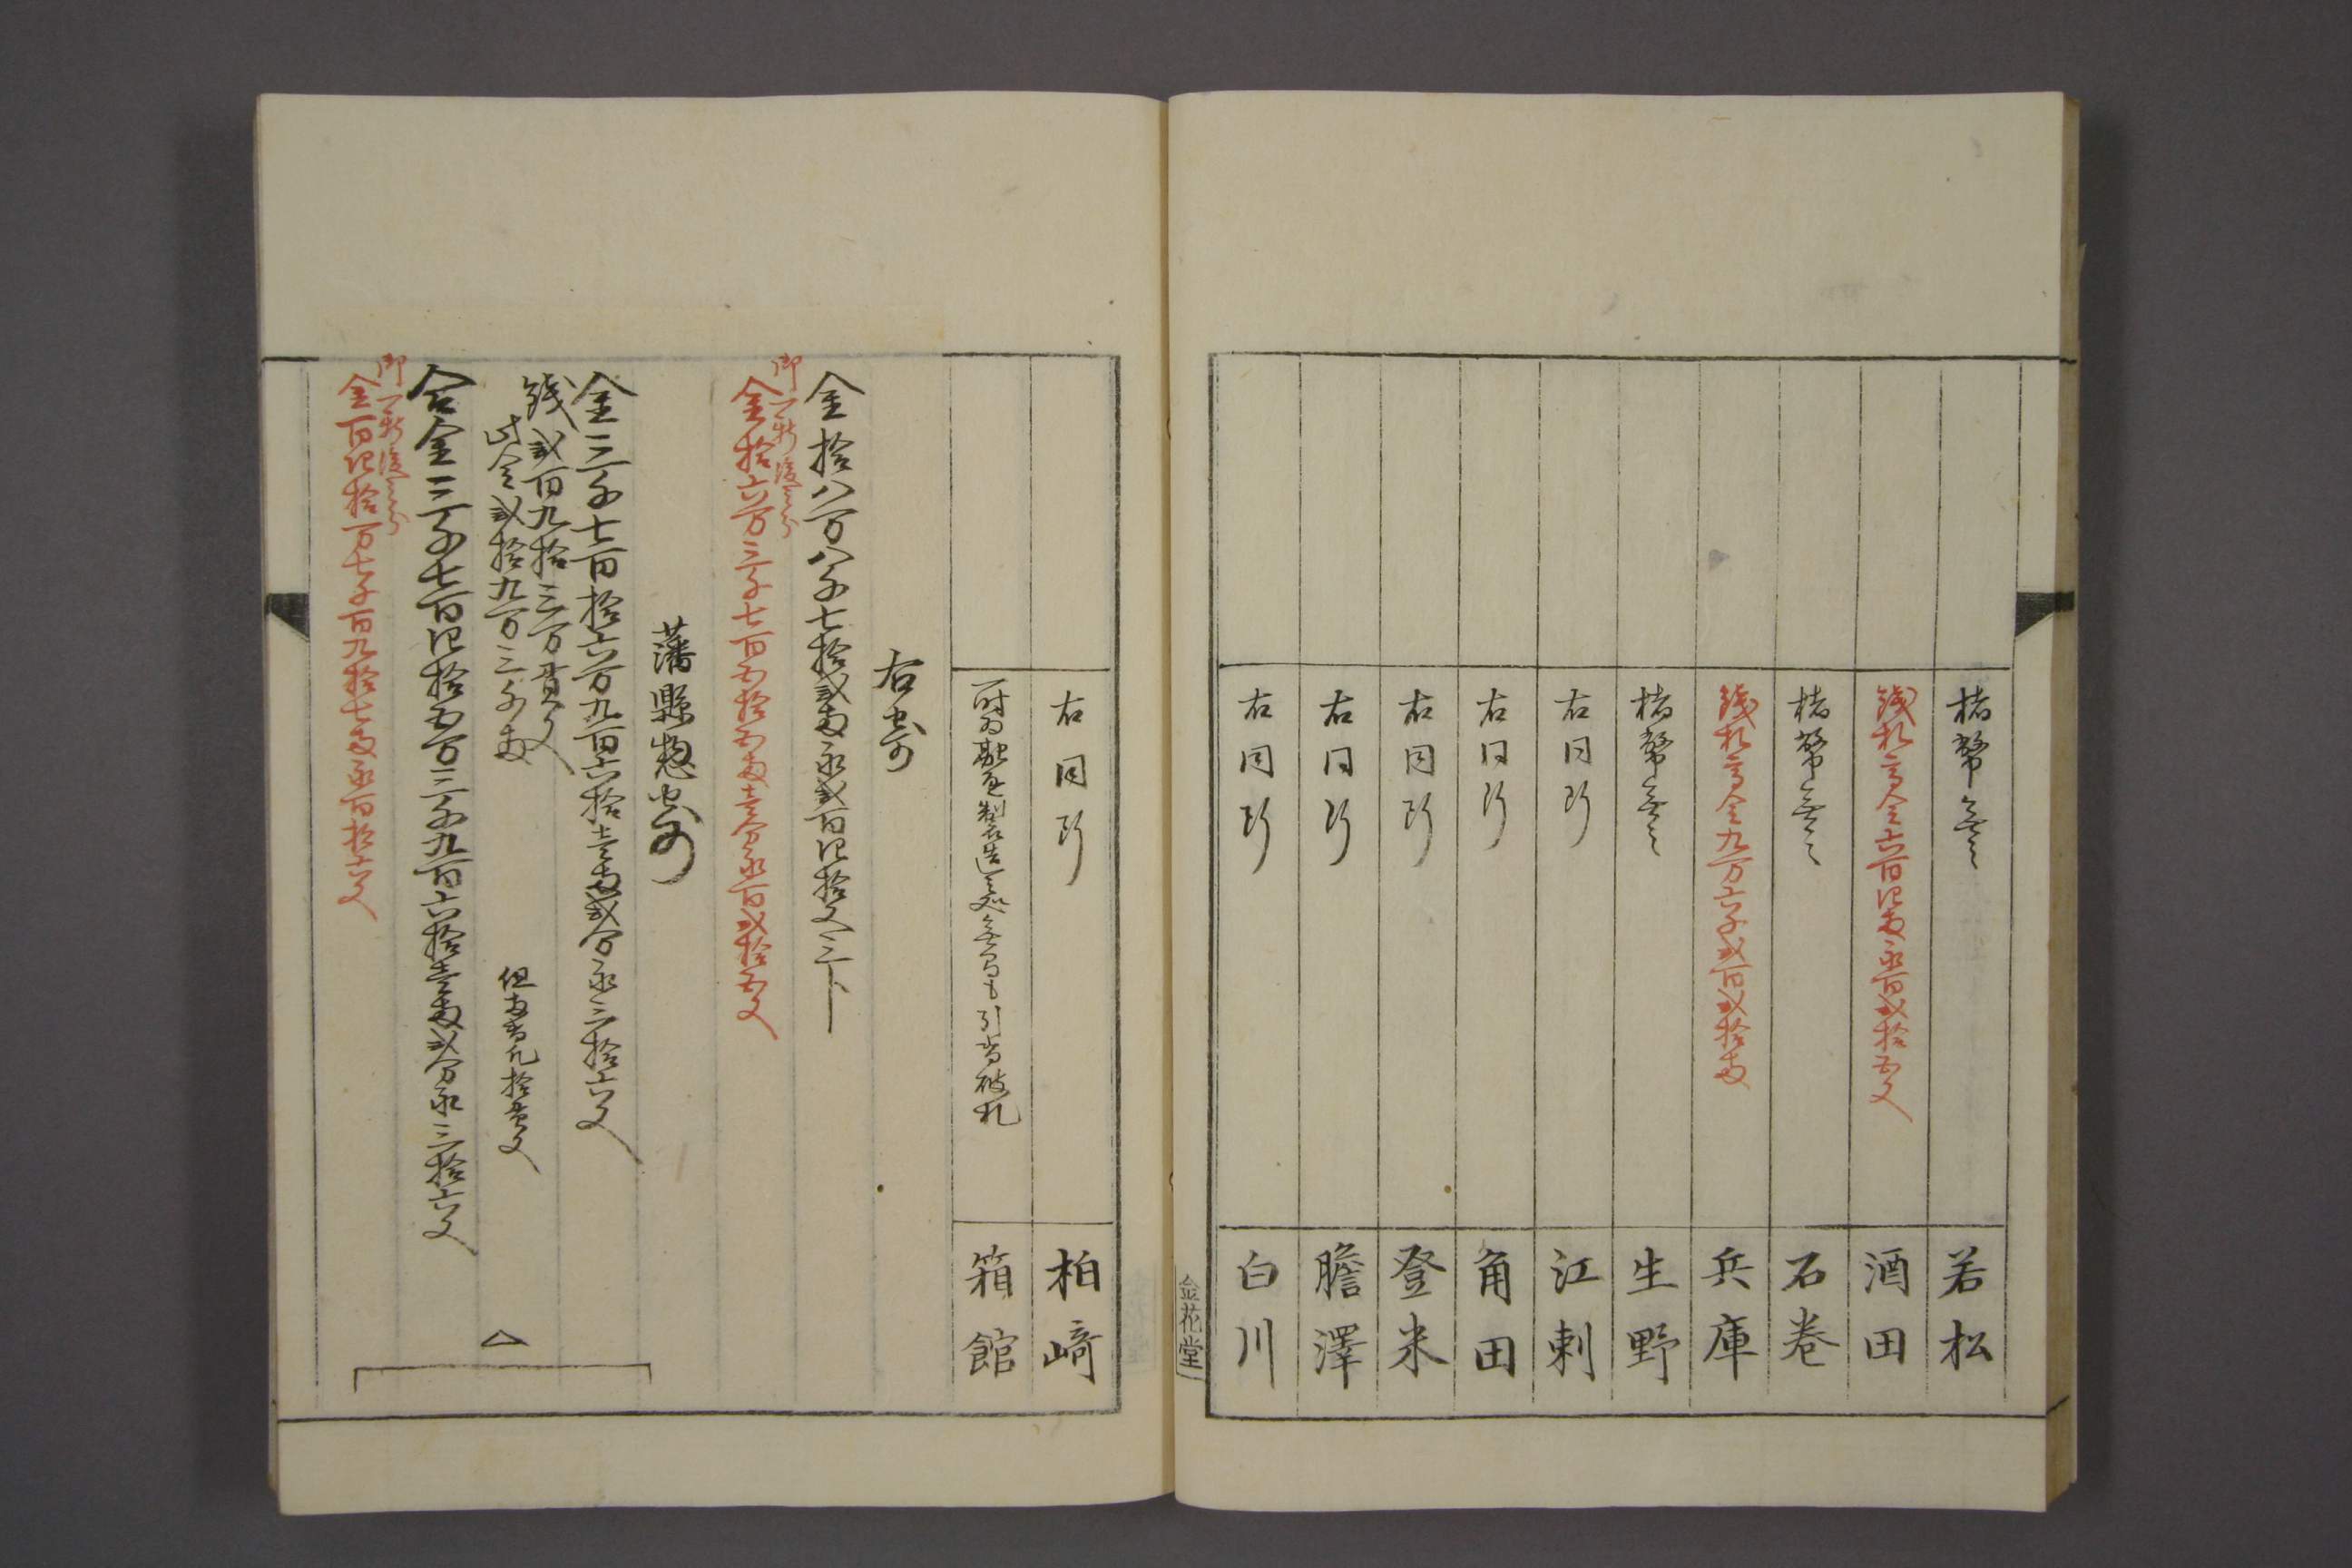 楮幣無之
若松
銭札高金六百四両永百弐拾五文
酒田
楮幣無之
石巻
銭札高金九万六千弐百弐拾両
兵庫
楮幣無之
生野
右同断
江刺
右同断
角田
右同断
登米
右同断
膽澤
右同断
白川
金花堂
右同断
柏﨑
製造之処無間も引当破札
箱館
右寄
金拾八万八千七拾弐両永弐百四拾文三卜
御一新後之分
金拾六万三千七百五拾五両壱分永百弐拾五文
藩縣惣寄
金三千七百拾六万九百六拾壱両弐分永三拾六文
銭弐百九拾三万貫文
此金弐拾九万三千両
但両替凡拾貫文
合金三千七百四拾五万三千九百六拾壱両弐分永三拾六文
御一新後之分
金百四拾万七千百九拾七両永百拾六文